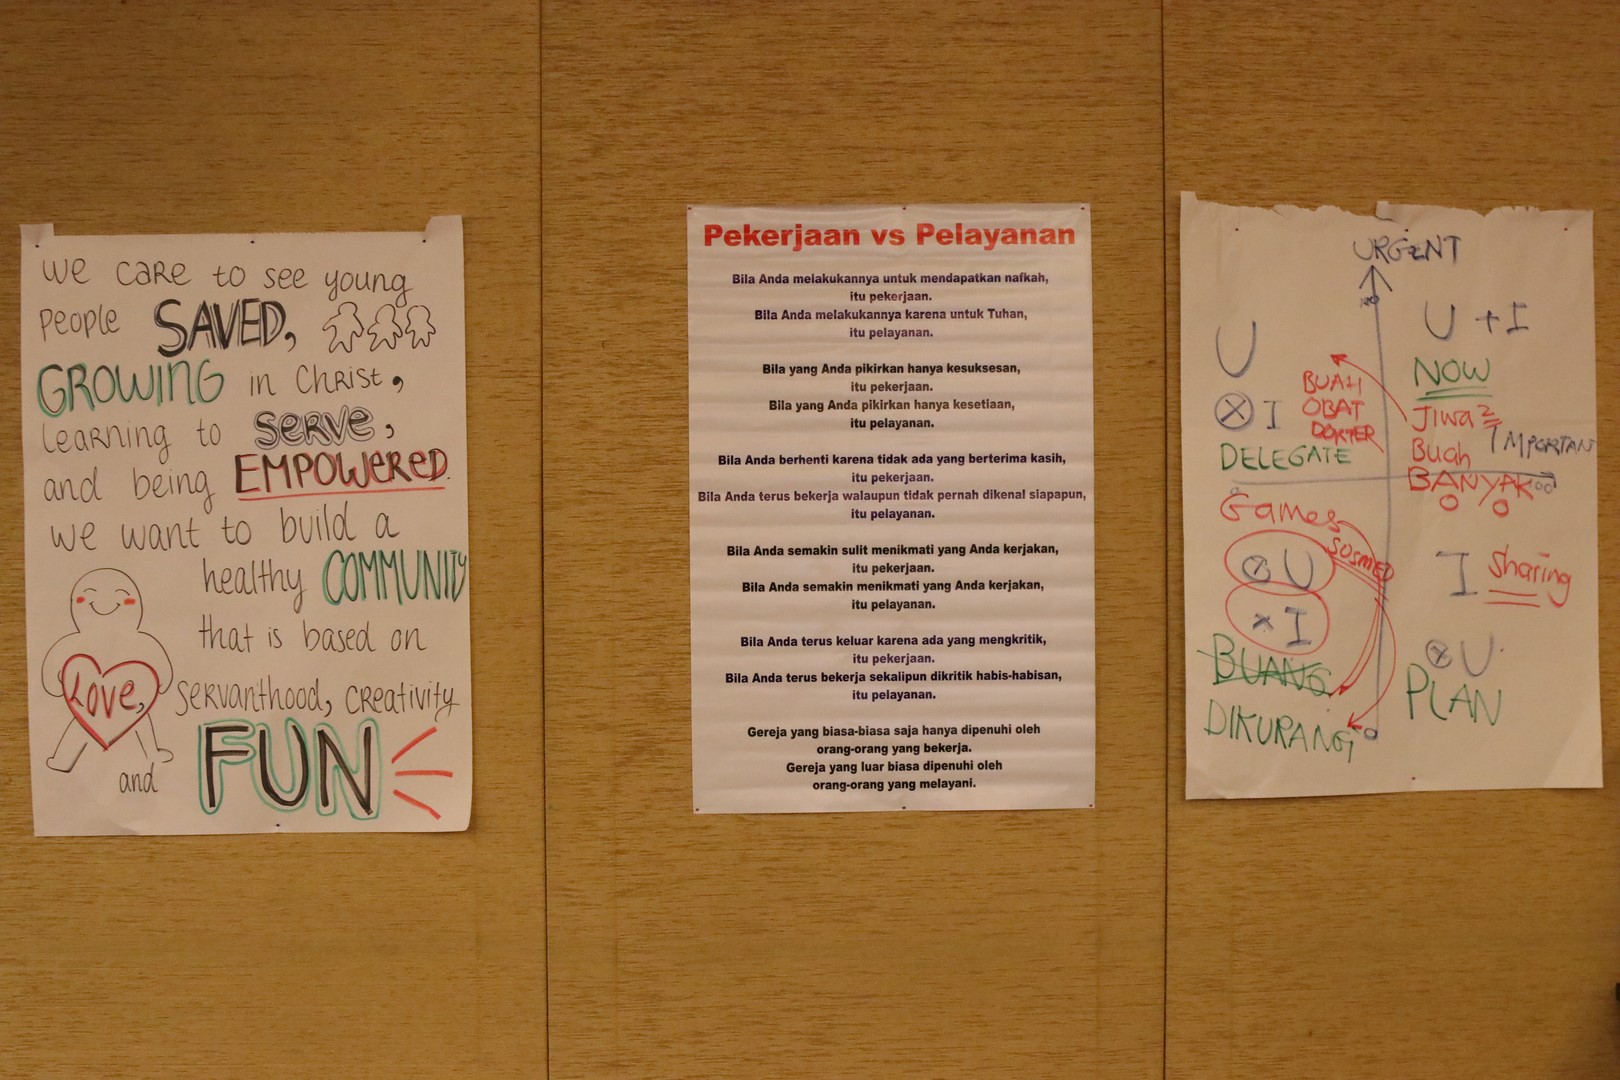 we care to see young
people SAVED,
GROWING in Christ,
Learning to serve,
and being EMPOWERED.
we want to build a
healthy COMMUNITY
that is based on
Love, servanthood, creativity
and FUN
Pekerjaan vs Pelayanan
Bila Anda melakukannya untuk mendapatkan nafkah,
itu pekerjaan.
Bila Anda melakukannya karena untuk Tuhan,
itu pelayanan.
Bila yang Anda pikirkan hanya kesuksesan,
itu pekerjaan.
Bila yang Anda pikirkan hanya kesetiaan,
itu pelayanan.
Bila Anda berhenti karena tidak ada yang berterima kasih,
itu pekerjaan.
Bila Anda terus bekerja walaupun tidak pernah dikenal siapapun,
itu pelayanan.
Bila Anda semakin sulit menikmati yang Anda kerjakan,
itu pekerjaan.
Bila Anda semakin menikmati yang Anda kerjakan,
itu pelayanan.
Bila Anda terus keluar karena ada yang mengkritik,
itu pekerjaan.
Bila Anda terus bekerja sekalipun dikritik habis-habisan,
itu pelayanan.
Gereja yang biasa-biasa saja hanya dipenuhi oleh
orang-orang yang bekerja.
Gereja yang luar biasa dipenuhi oleh
orang-orang yang melayani.
URGENT
U
x I
DELEGATE
BUAH
OBAT
DOKTER
U + I
NOW
Jiwa2
Buah
BANYAK
IMPORTAN
Games
SOSMED
x U
x I
BUANG
DIKURANGI
I sharing
x U
PLAN